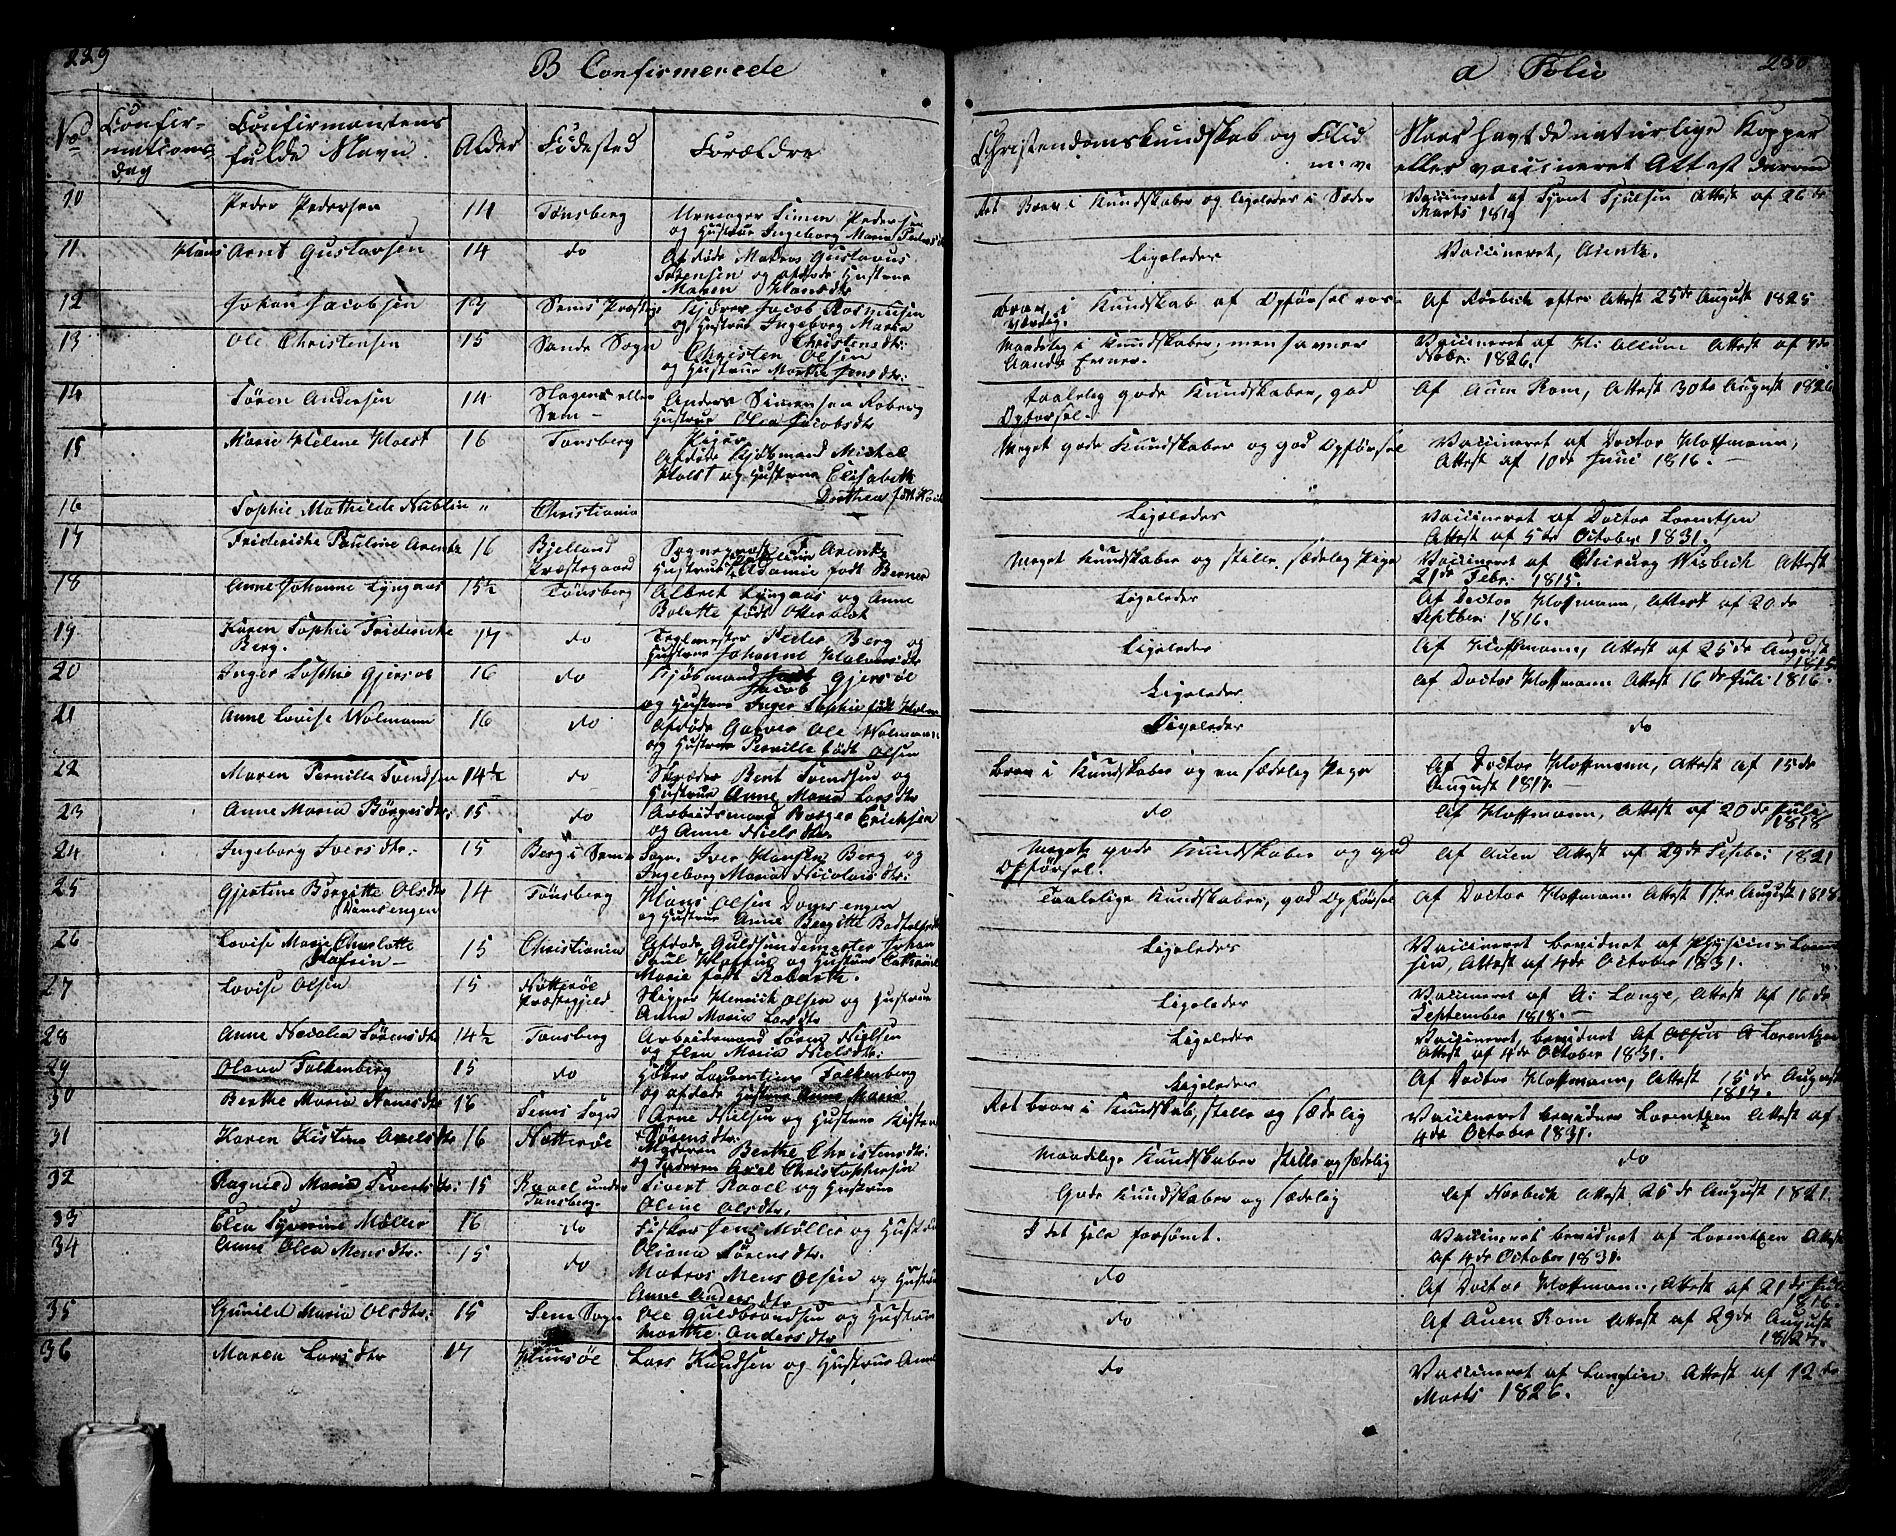 229
B Confirmerede
a Folio
230
No
Confirmations dag
Confirmantens fulde Navn.
Alder
Fødested
Forældre
Christendomskundskab og Flid m. v.
Naar havt de naturlige Kopper eller vaccineret Attest derom
10 Peder Pedersen 14 Tønsberg Urmager Simen Pedersen og Hustrue Ingeborg Maria Pedersdtr
Ret Brav i Kundskaber og ligeledes i Sæder
Vaccineret af Attest af 26de Marts 1819
11 Hans Arnt Gustavsen 14 do Afdøde Matros Gustavus Sørensen og afdøde Hustrue Maren Hansdtr
Ligeledes
Vaccineret, Arentz.
12 Johan Jacobsen 17 Sems Præstegj Jacob Rasmusen og Hustrue Ingeborg Maria Christensdtr:
Brav i Kundskab af Opførsel roesværdig.
Af Rørbech efter Attest 25de August 1825
13 Ole Christensen 15 Sande Sogn Christen Olsen og Hustrue Marthe Jensdtr:
Maadelig i Kundskaber, men savner Aands Evner.
Vaccineret af H: Allum Attest af 4de Nobr: 1826.
14 Søren Andersen 14 Slagens eller Sem - Anders Simensen Roberg Hustrue Olea Jacobsdtr
taalelig gode Kundskaber, god Opførsel.
Af Auen Rom, Attest 30te August 1826
15 Marie Helene Holst 16 Tønsberg Piger Afdøde Kjøbmand Michel Holst og Hustrue Elisabeth Dorthea født
Meget gode Kundskaber og god Opførsel
Vaccineret af Doctor Hoffmann, Attest af 10de Juni 1816. -
16 Sophie Mathilde Nublin " Christiania
Ligeledes
Vaccineret af Doctor Lorentsen Attest af 5te October 1831.
17 Friderikke Pauline Arentz 16 Bjelland Præstegaard Sognepræst F Arentz Hustrue født Berner
Meget Kundskaber og stille, sædelig Pige
Vaccineret af Chirurg Wisbech Attest 21de Febr: 1815.
18 Anne Johanne Lyngaas 15½ Tønsberg Albret Lyngaas og Anne Bolette født Otterbæt
Ligeledes
Af Doctor Hoffmann, Attest af 20de Septber 1816.
19 Karen Sophie Friderikke Berg. 17 do Teglmester Peder Berg og Hustrue Johanne Halvorsdtr
Ligeledes
Af Hoffmann, Attest af 25de August 1815
20 Inger Sophie Gjersøe 16 do Kjøbmand Jacob Gjersøe og Hustrue Inger Sophie født Holm
Ligeledes
Af Doctor Hoffmann Attest 16de Juli 1816.
21 Anne Lovise Wolmann 16 do Afdøde Garver Ole Wolmann og Hustrue Pernille født Olsen
Ligeledes
do
22 Maren Pernille Svendsen 14½ do Skræder Bent Svendsen og Hustrue Anne Maria Larsdtr
Brav i Kundskaber og en sædelig Pige
Af Doctor Hoffmann, Attest af 15de August 1817. -
23 Anne Maria Børgersdtr: 15 do Arbeidsmand Børger Erichsen og Anne Nielsdtr.
do
Af Hoffmann, Attest af 20de Juli 1818
24 Ingeborg Iversdtr: 15 Berg i Sems Sogn. Iver Hansen Berg og Ingeborg Maria Nicolaisdtr:
Meget gode Kundskaber og god Opførsel.
Af Auen Attest af 29de Septbr: 1821
25 Gjertine Borgitte Olsdtr Damsengen 14 Tønsberg Hans Olsen Damsengen og Hustrue Anne Bergitte
Taalelige Kundskaber, god Opførsel
Af Doctor Hoffmann Attest 11te August 1818.
26 Lovise Marie Charlotte 15 Christiania Afdøde Guldsmedmester Johan Paul og Hustrue Cathrine Marie født
Ligeledes
Vaccineret bevidnet af Physicus Lorentsen, Attest af 4de October 1831.
27 Lovise Olsen 15 Nøtterøe Præstegjeld Skipper Henrich Olsen og Hustrue Anne Maria Larsdtr
Ligeledes
Vaccineret af A: Lange, Attest af 16de September 1818. -
28 Anne Nicolea Sørensdtr 14½ Tønsberg Arbeidsmand Søren Nielsen og Elen Maria Nielsdtr:
Ligeledes
Vaccineret, bevidnet af Lorentzen Attest af 4de October 1831.
29 Olava Falkenberg 15 do Høker Laurentius Falkenberg og afdøde Hustrue Anne Marie
Ligeledes
Af Doctor Hoffmann, Attest 15de August 1817.
30 Berthe Maria Hansdtr 16 Sems Sogn Arne Nielsen og Hustrue Kisten Sørensdtr:
Ret brav i Kundskab, stille og sædelig
Vaccineret bevidnet Lorentzen Attest af 4de October 1831.
31 Karen Kistine Axelsdtr 16 Nøtterøe Moderen Berthe Christensdtr: og Faderen Axel Christophersen
Maadelige Kundskaber stille og sædelig
do
32 Ragnild Maria Siversdtr: 15 Raael under Tønsberg Sivert Raael og Hustrue Olene Olsdtr.
Gode Kundskaber og sædelig
Af Norbech Attest 26de August 1821.
33 Elen Syverine Møller 16 do Fisker Jens Møller og Hustrue Oliana Sørensdtr.
I det Hele forsømt.
Vaccineret bevidnet af Lorentzen Attest af 4de October 1831.
34 Anne Olea Mensdtr: 15 do Matros Mens Olsen og Hustrue Anne Andersdtr
do
Af Doctor Hoffmann, Attest af 21de Juli 1816.
35 Gunild Maria Olsdtr: 15 Sem Sogn Ole Guldbrandsen og Hustrue Marthe Andersdtr
do
Af Auen Rom Attest af 29de August 1827.
36 Maren Larsdtr 17 Lars Knudsen og Hustrue Anne
do
Vaccineret af Langlin Attest af 12te Marts 1826.